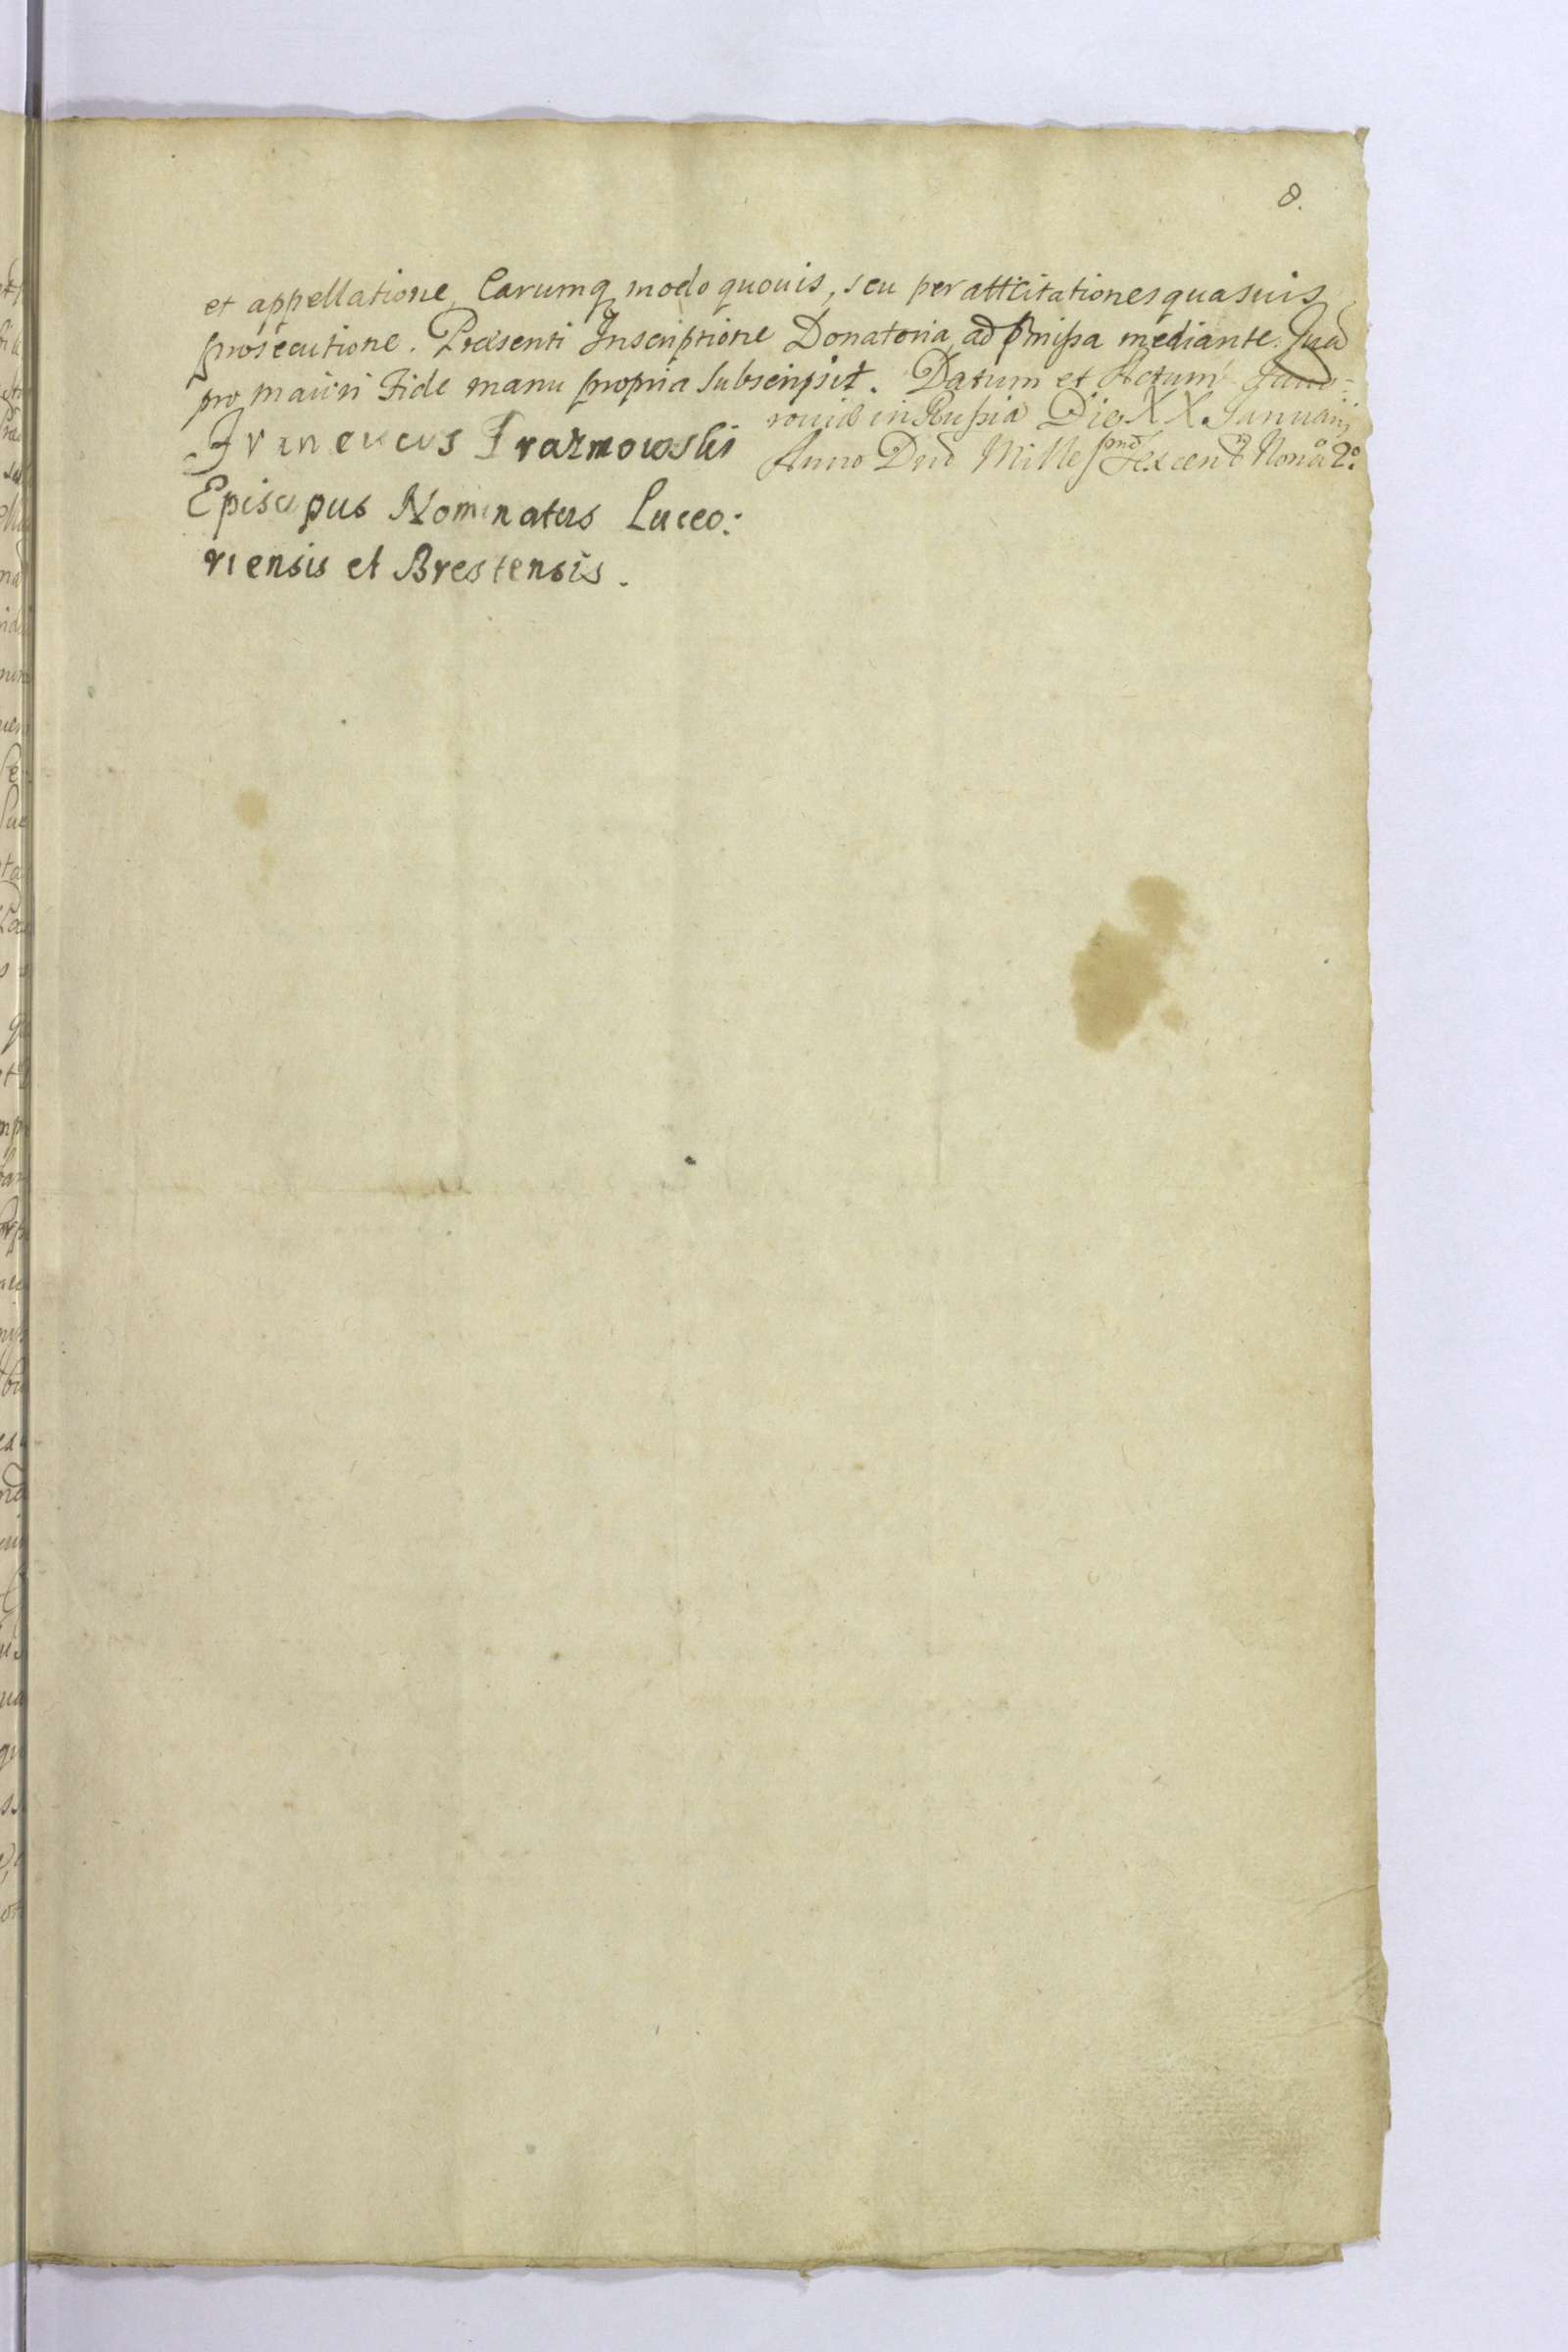 8.
et appellatione, Earumq modo quouis, seu per atticitationes quasuis
prosecutione. Præsenti Inscriptione Donatoria, ad p̃missa mediante. Quã
pro maiori Fide manu propria Subscripsit. Datum et Actum Jauo-
rouiæ in Russia Die XX Januarij
Anno Dnĩ Millesimõ Sexcentõ Nonag 2º.
Franciscus Prazmowski
Episcopus Nominatus Luceo:
riensis et Brestensis.